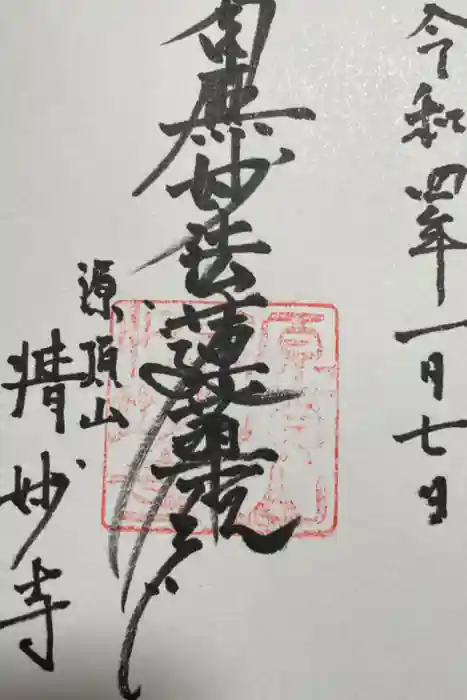 令和四年一月七日
南無妙法蓮華経
源頂山
妙寺